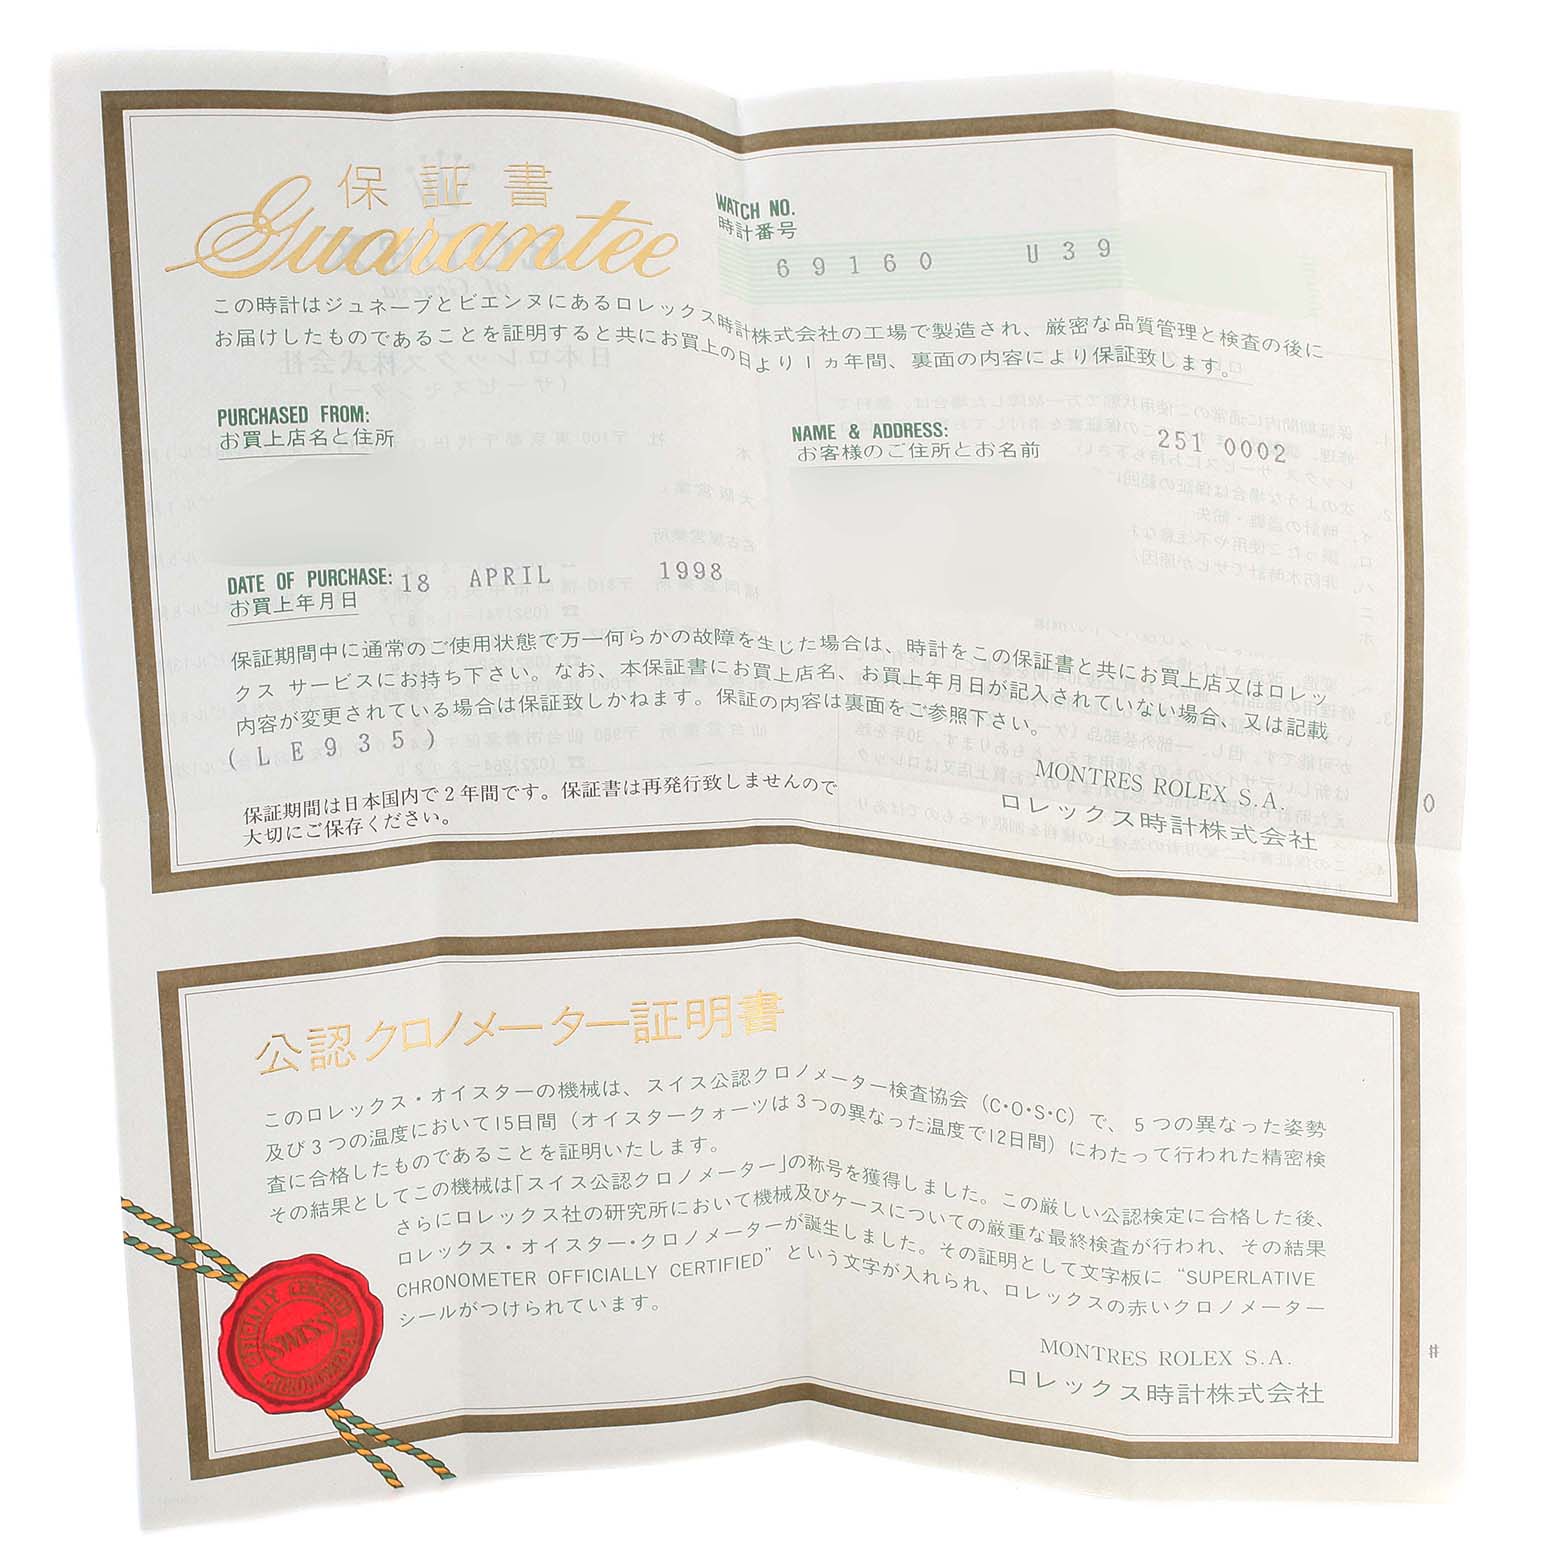 保証書
Guarantee
WATCH NO.
時計番号
69160 U39
この時計はジュネーブとビエンヌにあるロレックス時計株式会社の工場で製造され、厳密な品質管理と検査の後に
お届けしたものであることを証明すると共にお買上の日より1ヵ年間、裏面の内容により保証致します。
PURCHASED FROM:
お買上店名と住所
NAME & ADDRESS:
お客様のご住所とお名前
251 0002
DATE OF PURCHASE: 18 APRIL 1998
お買上年月日
保証期間中に通常のご使用状態で万一何らかの故障を生じた場合は、時計をこの保証書と共にお買上店又はロレッ
クス サービスにお持ち下さい。なお、本保証書にお買上店名、お買上年月日が記入されていない場合、又は記載
内容が変更されている場合は保証致しかねます。保証の内容は裏面をご参照下さい。
(LE935)
MONTRES ROLEX S.A.
ロレックス時計株式会社
保証期間は日本国内で2年間です。保証書は再発行致しませんので
大切にご保存ください。
0
公認クロノメーター証明書
このロレックス・オイスターの機械は、スイス公認クロノメーター検査協会（C・O・S・C）で、5つの異なった姿勢
及び3つの温度において15日間（オイスタークォーツは3つの異なった温度で12日間）にわたって行われた精密検
査に合格したものであることを証明いたします。
その結果としてこの機械は「スイス公認クロノメーター」の称号を獲得しました。この厳しい公認検定に合格した後、
さらにロレックス社の研究所において機械及びケースについての厳重な最終検査が行われ、その結果
ロレックス・オイスター・クロノメーターが誕生しました。その証明として文字板に “SUPERLATIVE
CHRONOMETER OFFICIALLY CERTIFIED” という文字が入れられ、ロレックスの赤いクロノメーター
シールがつけられています。
MONTRES ROLEX S.A.
ロレックス時計株式会社
#
OFFICIALLY CERTIFIED
SWISS
CHRONOMETER